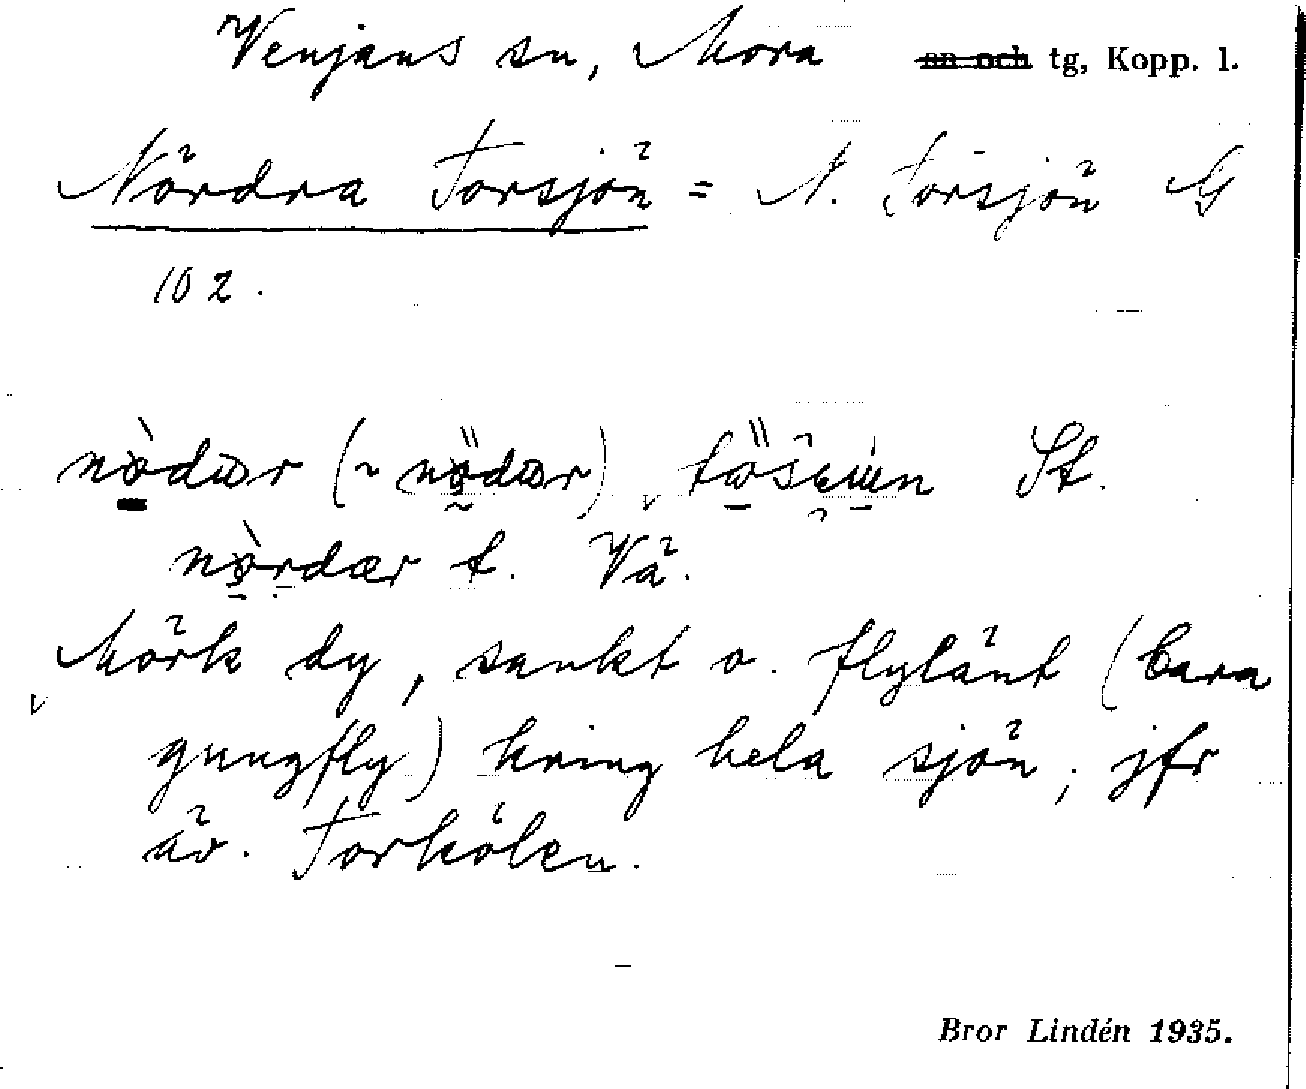 Venjans sn, Mora ~~sn och~~ tg, Kopp. l.
Nördra Torsjön = N. Torsjön G
102.
nòdær (~ nödær) St.
nòrdær t. Vä.
Mörk dy, sankt o. flylänt (bara
gungfly) kring hela sjön; jfr
äv. Torkölen.
Bror Lindén 1935.